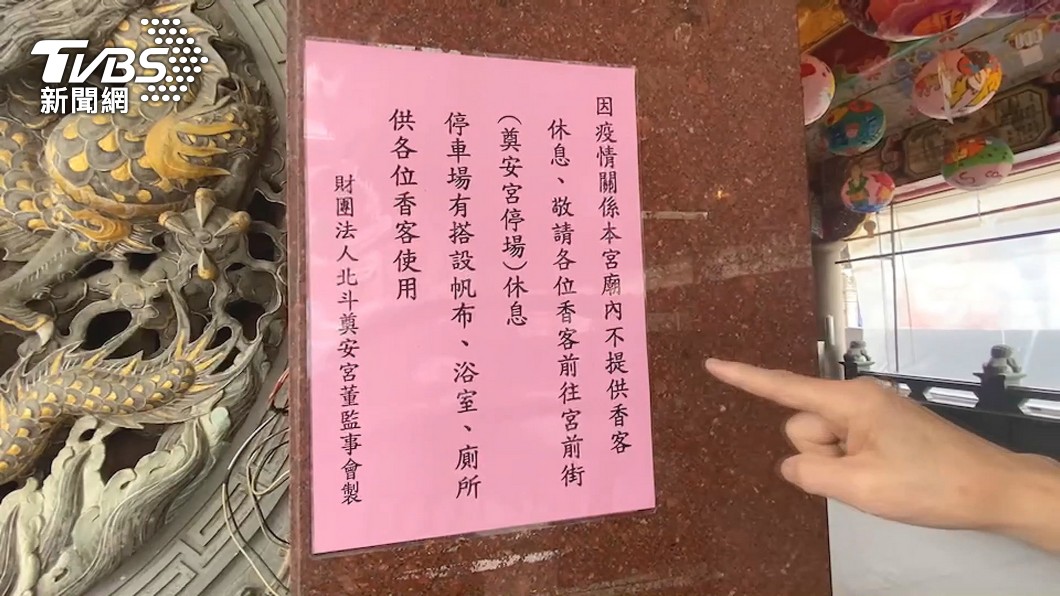 TVBS
新聞網
因疫情關係本宮廟內不提供香客
休息、敬請各位香客前往宮前街
(奠安宮停場)休息
停車場有搭設帆布、浴室、廁所
供各位香客使用
財團法人北斗奠安宮董監事會製